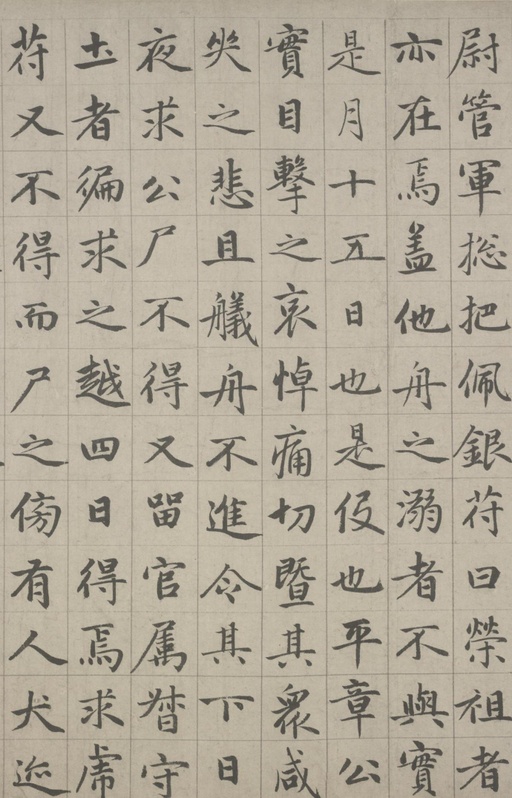 尉管軍総把佩銀苻曰榮祖者
亦在焉盖他舟之溺者不與實
是月十五日也是伇也平章公
實目擊之哀悼痛切暨其衆咸
哭之悲且艤舟不進令其下日
夜求公尸不得又留官属督守
土者徧求之越四日得焉求虎
苻又不得而尸之傍有人犬迹